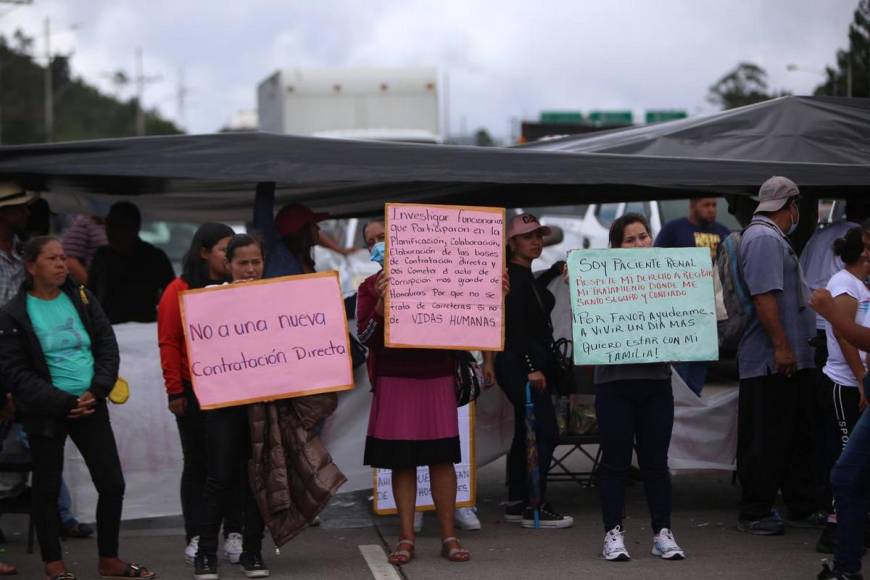 No a una nueva
Contratación Directa
Investigar funcionarios
que Participarón en la
Planificación, Colaboración,
Elaboración de las bases
de Contratación directa y
asi Cometer el acto de
Corrupción mas grande de
Honduras Por que no se
trata de Carreteras si no
de VIDAS HUMANAS
SOY PACIENTE RENAL
RESPETE MI DERECHO A RECIBIR
MI TRATAMIENTO DONDE ME
SIENTO SEGURO Y CONFIADO
POR FAVOR AYUDENME
A VIVIR UN DIA MAS
QUIERO ESTAR CON MI
FAMILIA!